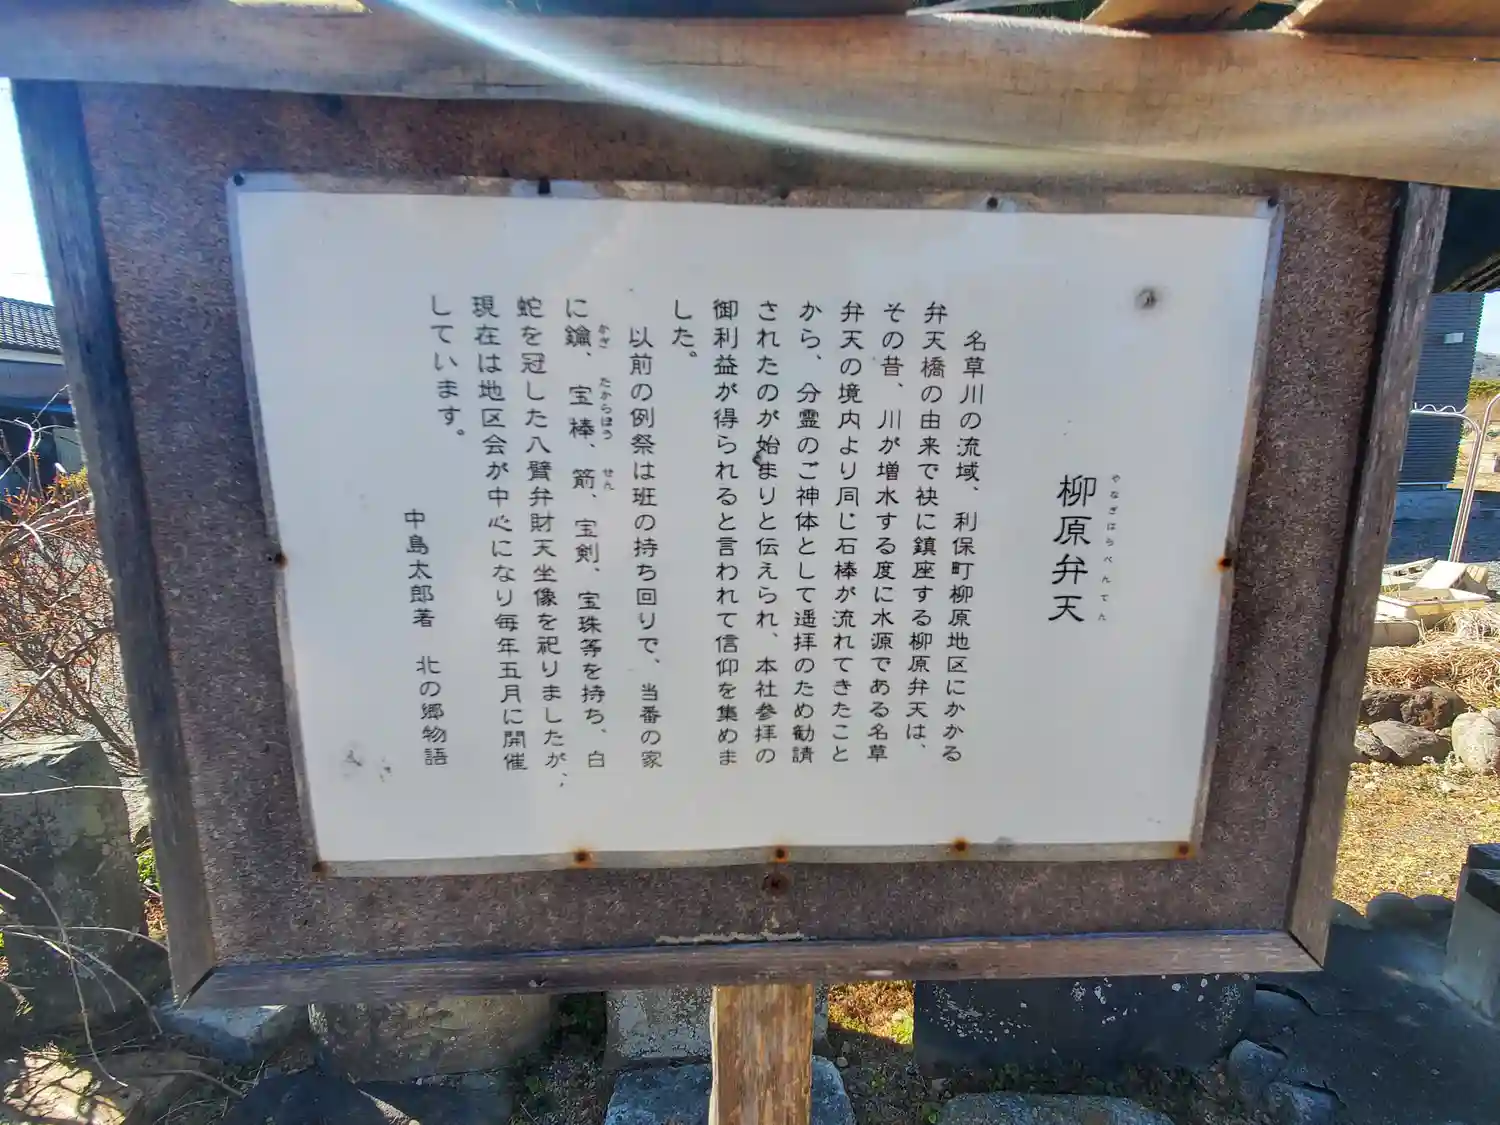 柳原弁天
やなぎはらべんてん
名草川の流域、利保町柳原地区にかかる
弁天橋の由来で袂に鎮座する柳原弁天は、
その昔、川が増水する度に水源である名草
弁天の境内より同じ石棒が流れてきたこと
から、分霊のご神体として遥拝のため勧請
されたのが始まりと伝えられ、本社参拝の
御利益が得られると言われて信仰を集めま
した。
以前の例祭は班の持ち回りで、当番の家
に鑰、宝棒、箭、宝剣、宝珠等を持ち、白
かぎ たからぼう せん
蛇を冠した八臂弁財天坐像を祀りましたが、
現在は地区会が中心になり毎年五月に開催
しています。
中島太郎著 北の郷物語